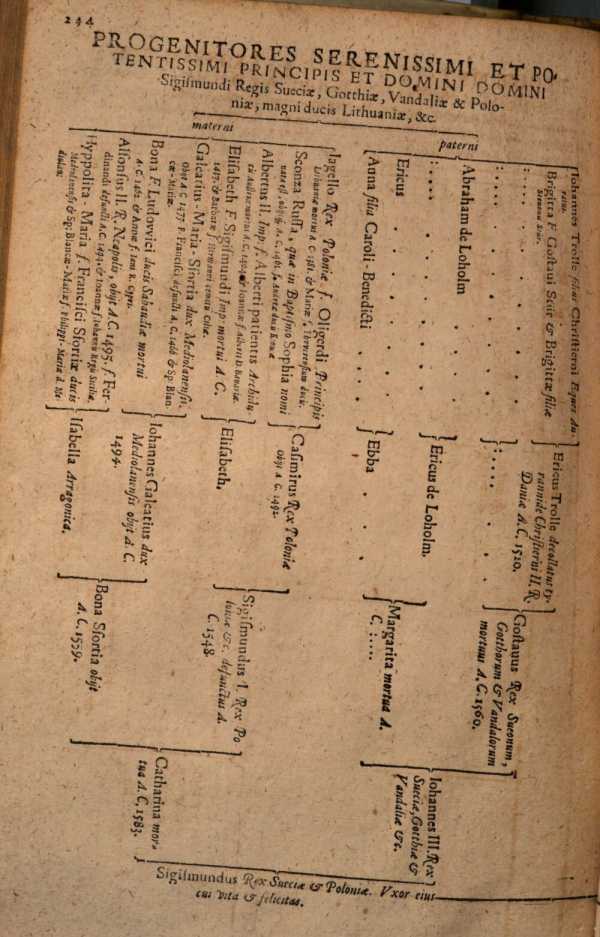 244
PROGENITORES SERENISSIMI ET PO-
TENTISSIMI PRINCIPIS ET DOMINI DOMINI
Sigiſmundi Regis Sueciæ, Gotthiæ, Vandaliæ & Polo-
niæ, magni ducis Lithuaniæ, &c.
materni
paterni
Iohannes Trolle filius Chriſtierni Eques Au-
ratus.
Brigitta F. Goſtaui Stur & Brigittæ filiæ
: . . . .
Abraham de Loholm
: . . . .
Ericus
Anna filia Caroli Benedicti
Iagello Rex Poloniæ f. Oligerdi Principis
Sconza Ruſſa, quæ in Baptiſmo Sophia nomi
Albertus II. Imp. f. Alberti patientis Archidu-
Eliſabeth F. Sigiſmundi Imp. mortui A. C.
Galeatius-Maria-Sfortia dux Mediolanenſis
Bona F. Ludovici ducis Sabaudiæ mortui
A. C. 1462. & Annæ f. Iani R. Cypri.
Alfonſus II. R. Neapolis obijt A. C. 1495. f. Fer-
dinandi defuncti A. C. 1494. & Iſabellæ
Hyppolita-Maria f. Franciſci Sfortiæ ducis
Ericus Trolle decollatus ty-
rannide Chriſtierni II. R.
Daniæ A. C. 1520.
: . . . .
Ericus de Loholm.
Ebba
Caſimirus Rex Poloniæ
Obijt A. C. 1492.
Eliſabeth.
Iohannes Galeatius dux
Mediolanenſis obijt A. C.
1494.
Iſabella Arragonica.
Goſtauus Rex Sueonum,
Gotthorum & Vandalorum
mortuus A. C. 1560.
Margarita mortua A.
C. : . . . .
Sigiſmundus I. Rex Po
loniæ &c. defunctus A.
C. 1548.
Bona Sfortia obijt
A. C. 1559.
Iohannes III. Rex
Sueciæ, Gotthiæ &
Vandaliæ &c.
Catharina mor-
tua A. C. 1583.
Sigiſmundus Rex Sueciæ & Poloniæ. Vxor eius
cui vita & felicitas.